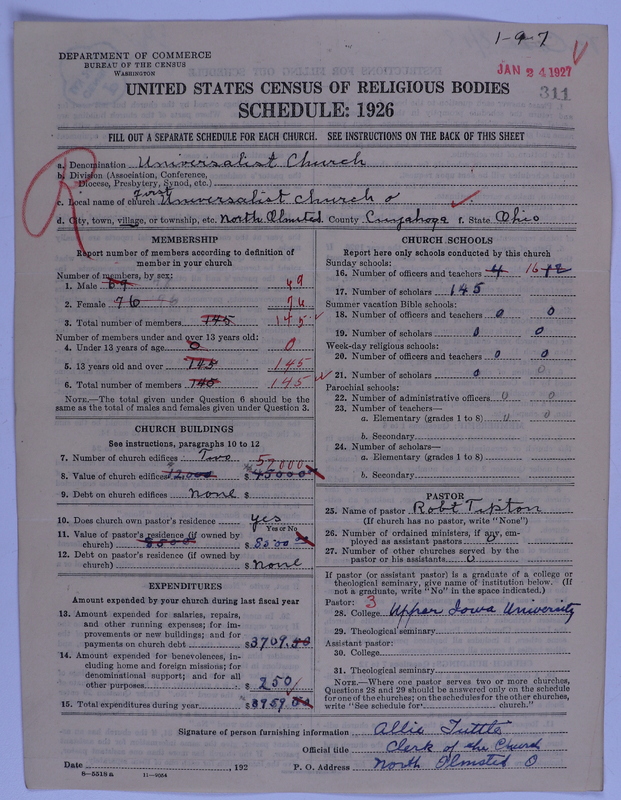 1-9-7
DEPARTMENT OF COMMERCE
BUREAU OF THE CENSUS
WASHINGTON
JAN 24 1927
311
UNITED STATES CENSUS OF RELIGIOUS BODIES
SCHEDULE: 1926
FILL OUT A SEPARATE SCHEDULE FOR EACH CHURCH. SEE INSTRUCTIONS ON THE BACK OF THIS SHEET
R
a. Denomination Universalist Church
b. Division (Association, Conference,
Diocese, Presbytery, Synod, etc.)
c. Local name of church First Universalist Church
d. City, town, village, or township, etc. North Olmsted County Cuyahoga f. State Ohio
MEMBERSHIP
Report number of members according to definition of
member in your church
Number of members, by sex:
1. Male 69
2. Female 76 76
3. Total number of members 145 145
Number of members under and over 13 years old:
4. Under 13 years of age 0 0
5. 13 years old and over 145 145
6. Total number of members 145 145
NOTE.—The total given under Question 6 should be
same as the total of males and females given under Question 3.
CHURCH BUILDINGS
See instructions, paragraphs 10 to 12
7. Number of church edifices Two
57000
8. Value of church edifices 12000 $ 45000
9. Debt on church edifices none $
10. Does church own pastor's residence yes
Yes or No
11. Value of pastor's residence (if owned by
church) 8500 $ 8500
12. Debt on pastor's residence (if owned by
church) $ none
EXPENDITURES
Amount expended by your church during last fiscal year
13. Amount expended for salaries, repairs,
and other running expenses; for im-
provements or new buildings; and for
payments on church debt $ 3709.
14. Amount expended for benevolences, in-
cluding home and foreign missions; for
denominational support; and for all
other purposes $ 250
15. Total expenditures during year $ 3959
CHURCH SCHOOLS
Report here only schools conducted by this church
Sunday schools:
16. Number of officers and teachers 4 16 12
17. Number of scholars 145
Summer vacation Bible schools:
18. Number of officers and teachers 0 0
19. Number of scholars 0 0
Week-day religious schools:
20. Number of officers and teachers 0 0
21. Number of scholars 0 0
Parochial schools:
22. Number of administrative officers 0 0
23. Number of teachers—
a. Elementary (grades 1 to 8) 0 0
b. Secondary
24. Number of scholars—
a. Elementary (grades 1 to 8)
b. Secondary
PASTOR
25. Name of pastor Robt Tipton
(If church has no pastor, write "None")
26. Number of ordained ministers, if any, em-
ployed as assistant pastors 0
27. Number of other churches served by the
pastor or his assistants 0
If pastor (or assistant pastor) is a graduate of a college or
theological seminary, give name of institution below. (If
not a graduate, write "No" in the space indicated.)
Pastor: 3
28. College Uppar Iowa University
29. Theological seminary
Assistant pastor:
30. College
31. Theological seminary
NOTE.—Where one pastor serves two or more churches,
Questions 28 and 29 should be answered only on the schedule
for one of the churches; on the schedules for the other churches,
write "See schedule for church."
Signature of person furnishing information Allie Tuttle
Official title Clerk of the Church
Date , 192 P. O. Address North Olmsted O
8—5518a 11—9054